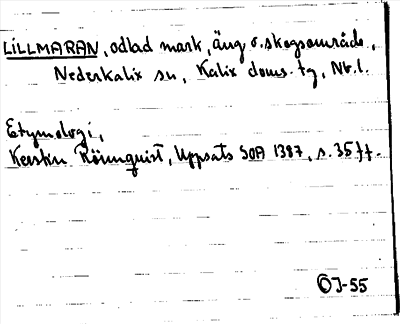 LILLMARAN, odlad mark, äng o. skogsområde,
Nederkalix sn, Kalix doms. tg, Nb. l.
Etymologi,
Kerstin Rönnquist, Uppsats SOA 1387, s. 35 ff.
ÖJ-55